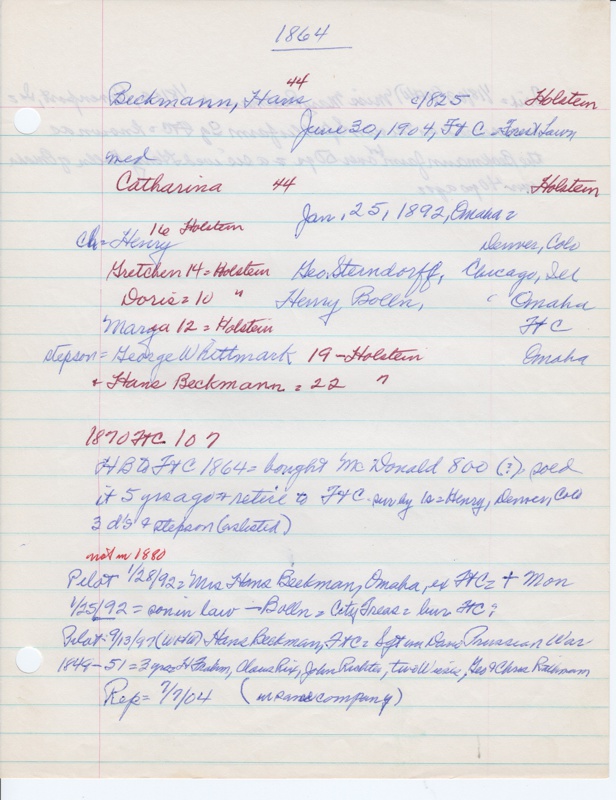 1864
Beckmann, Hans 44 c1825 Holstein
June 30, 1904, Ft C = Forest Lawn
med
Catharina 44 Holstein
Jan, 25, 1892, Omaha =
Ch = Henry 16 Holstein Denver, Colo
Gretchen 14 = Holstein Geo. Sterndorff, Chicago, Ill
Doris = 10 " Henry Bolln, " Omaha
Marga 12 = Holstein Ft C
stepson = George Whittmark 19 - Holstein Omaha
+ Hans Beckmann = 22 "
1870 Ft C 107
HB to Ft C 1864 = bought Mc Donald 800 (?), sold
it 5 yrs ago + retire to Ft C - surv by 1s = Henry, Denver, Colo
3 d's + stepson (as listed)
not in 1880
Pilot 1/28/92 = Mrs Hans Beckman, Omaha, ex Ft C = + Mon
1/25/92 = son in law - Bolln = City Treas = bur Ft C =
Pilot - 9/13/97 (WHW) Hans Beckman, Ft C = Sgt in Dano Prussian War
1849-51 = 3 yrs = H Frahm, Claus Rix, John Richter, two Wiese, Geo + Chris Rathmann
Rep = 7/7/04 (in same company)